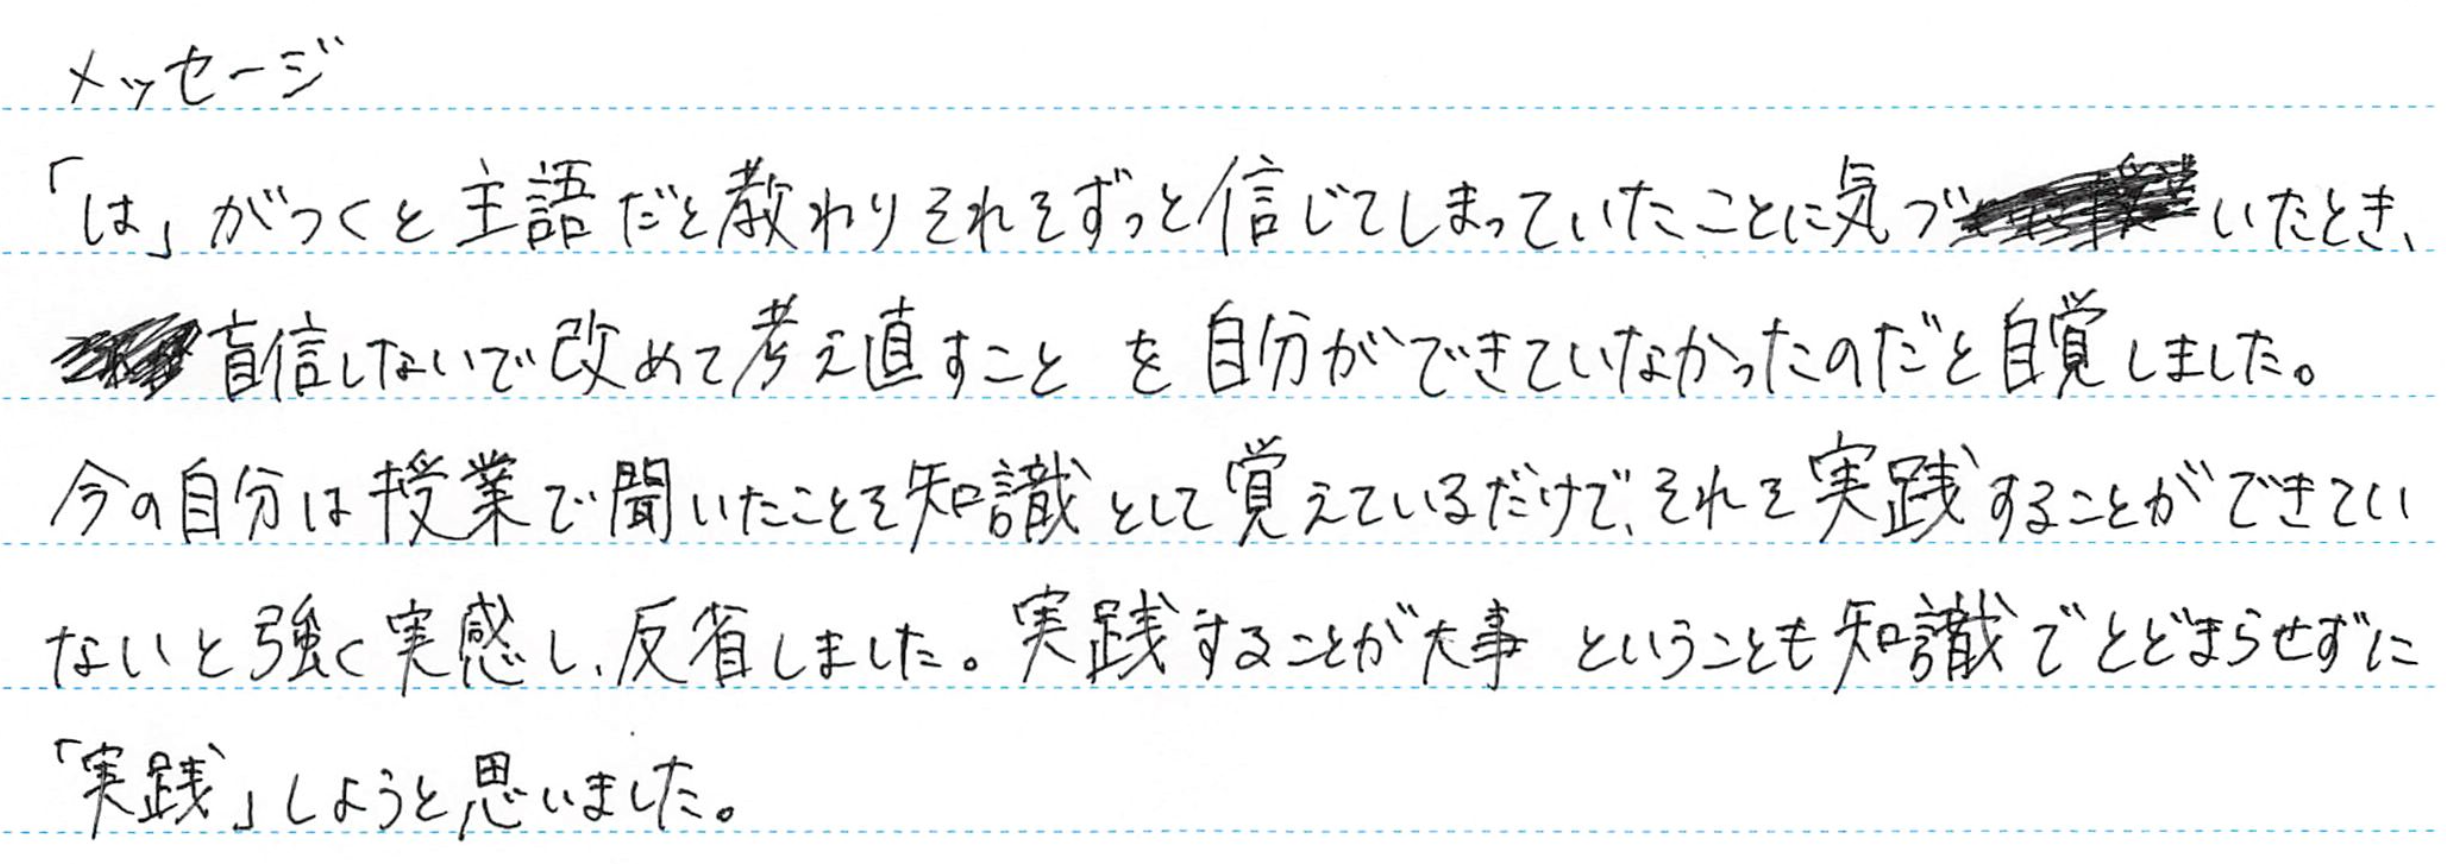 メッセージ
「は」がつくと主語だと教わりそれをずっと信じてしまっていたことに気づいたとき、
盲信しないで改めて考え直すことを自分ができていなかったのだと自覚しました。
今の自分は授業で聞いたことを知識として覚えているだけで、それを実践することができてい
ないと強く実感し、反省しました。実践することが大事ということも知識でとどまらせずに
「実践」しようと思いました。